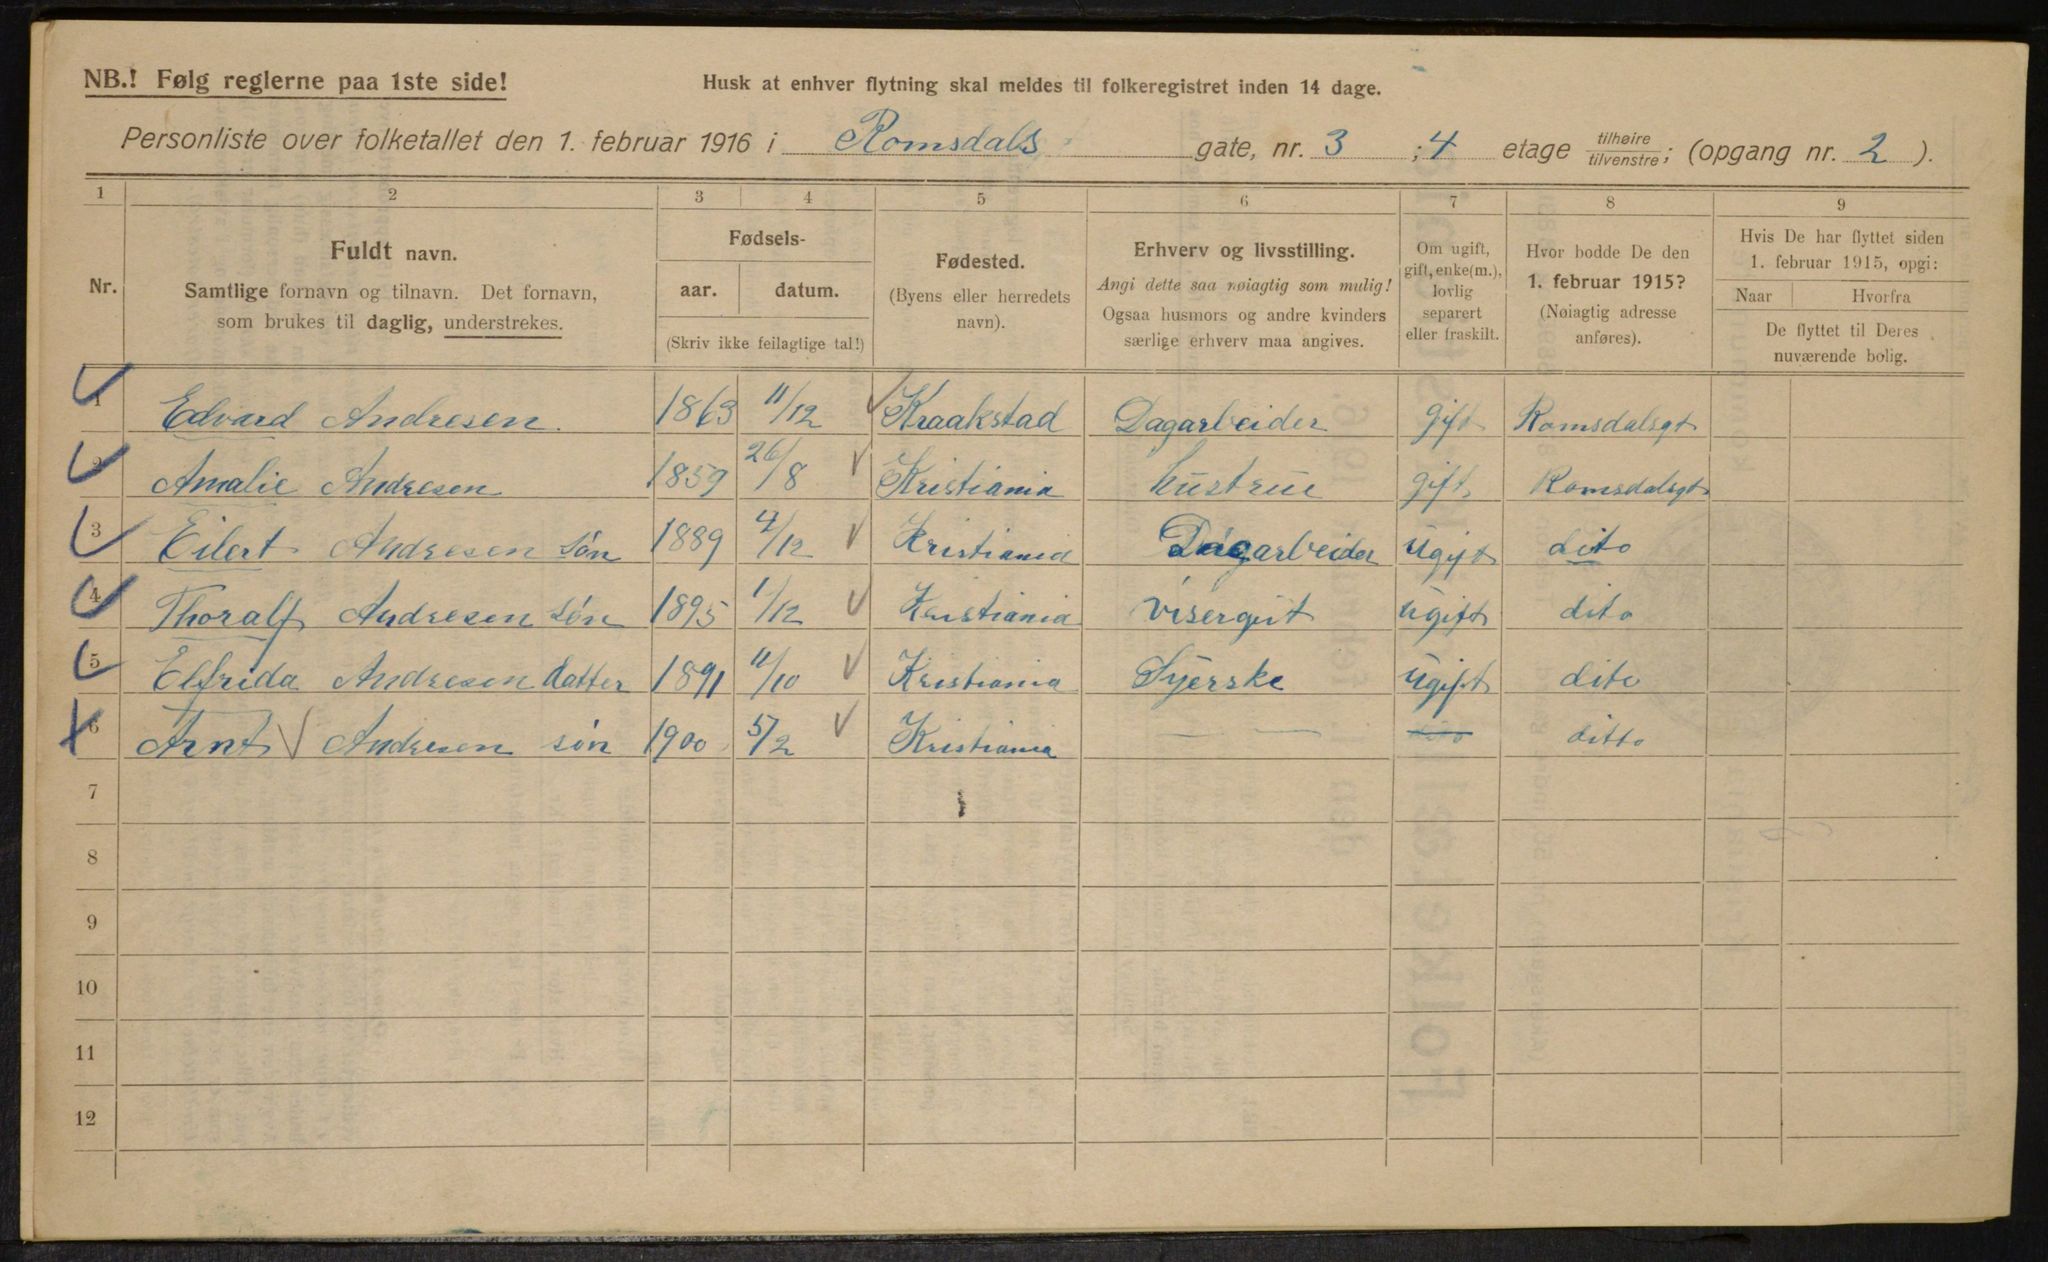 NB.! Følg reglerne paa 1ste side!
Husk at enhver flytning skal meldes til folkeregistret inden 14 dage.
Personliste over folketallet den 1. februar 1916 i Romsdals gate, nr. 3 ; 4 etage tilhøire/tilvenstre; (opgang nr. 2 ).
1 2 3 4 5 6 7 8 9
Nr.
Fuldt navn.
Samtlige fornavn og tilnavn. Det fornavn,
som brukes til daglig, understrekes.
Fødsels-
aar. datum.
(Skriv ikke feilagtige tal!)
Fødested.
(Byens eller herredets
navn).
Erhverv og livsstilling.
Angi dette saa nøiagtig som mulig!
Ogsaa husmors og andre kvinders
særlige erhverv maa angives.
Om ugift,
gift, enke(m.),
lovlig
separert
eller fraskilt.
Hvor bodde De den
1. februar 1915?
(Nøiagtig adresse
anføres).
Hvis De har flyttet siden
1. februar 1915, opgi:
Naar Hvorfra
De flyttet til Deres
nuværende bolig.
1 Edvard Andresen. 1863 11/12 Kraakstad Dagarbeider gift Romsdalsgt
2 Amalie Andresen 1859 26/8 Kristiania hustrue gift Romsdalsgt
3 Eilert Andresen søn 1889 4/12 Kristiania Dagarbeider ugift dito
4 Thoralf Andresen søn 1895 1/12 Kristiania visergut ugift dito
5 Elfrida Andresen datter 1891 11/10 Kristiania Syerske ugift dito
6 Arnt Andresen søn 1900 5/2 Kristiania — — ditto
7
8
9
10
11
12